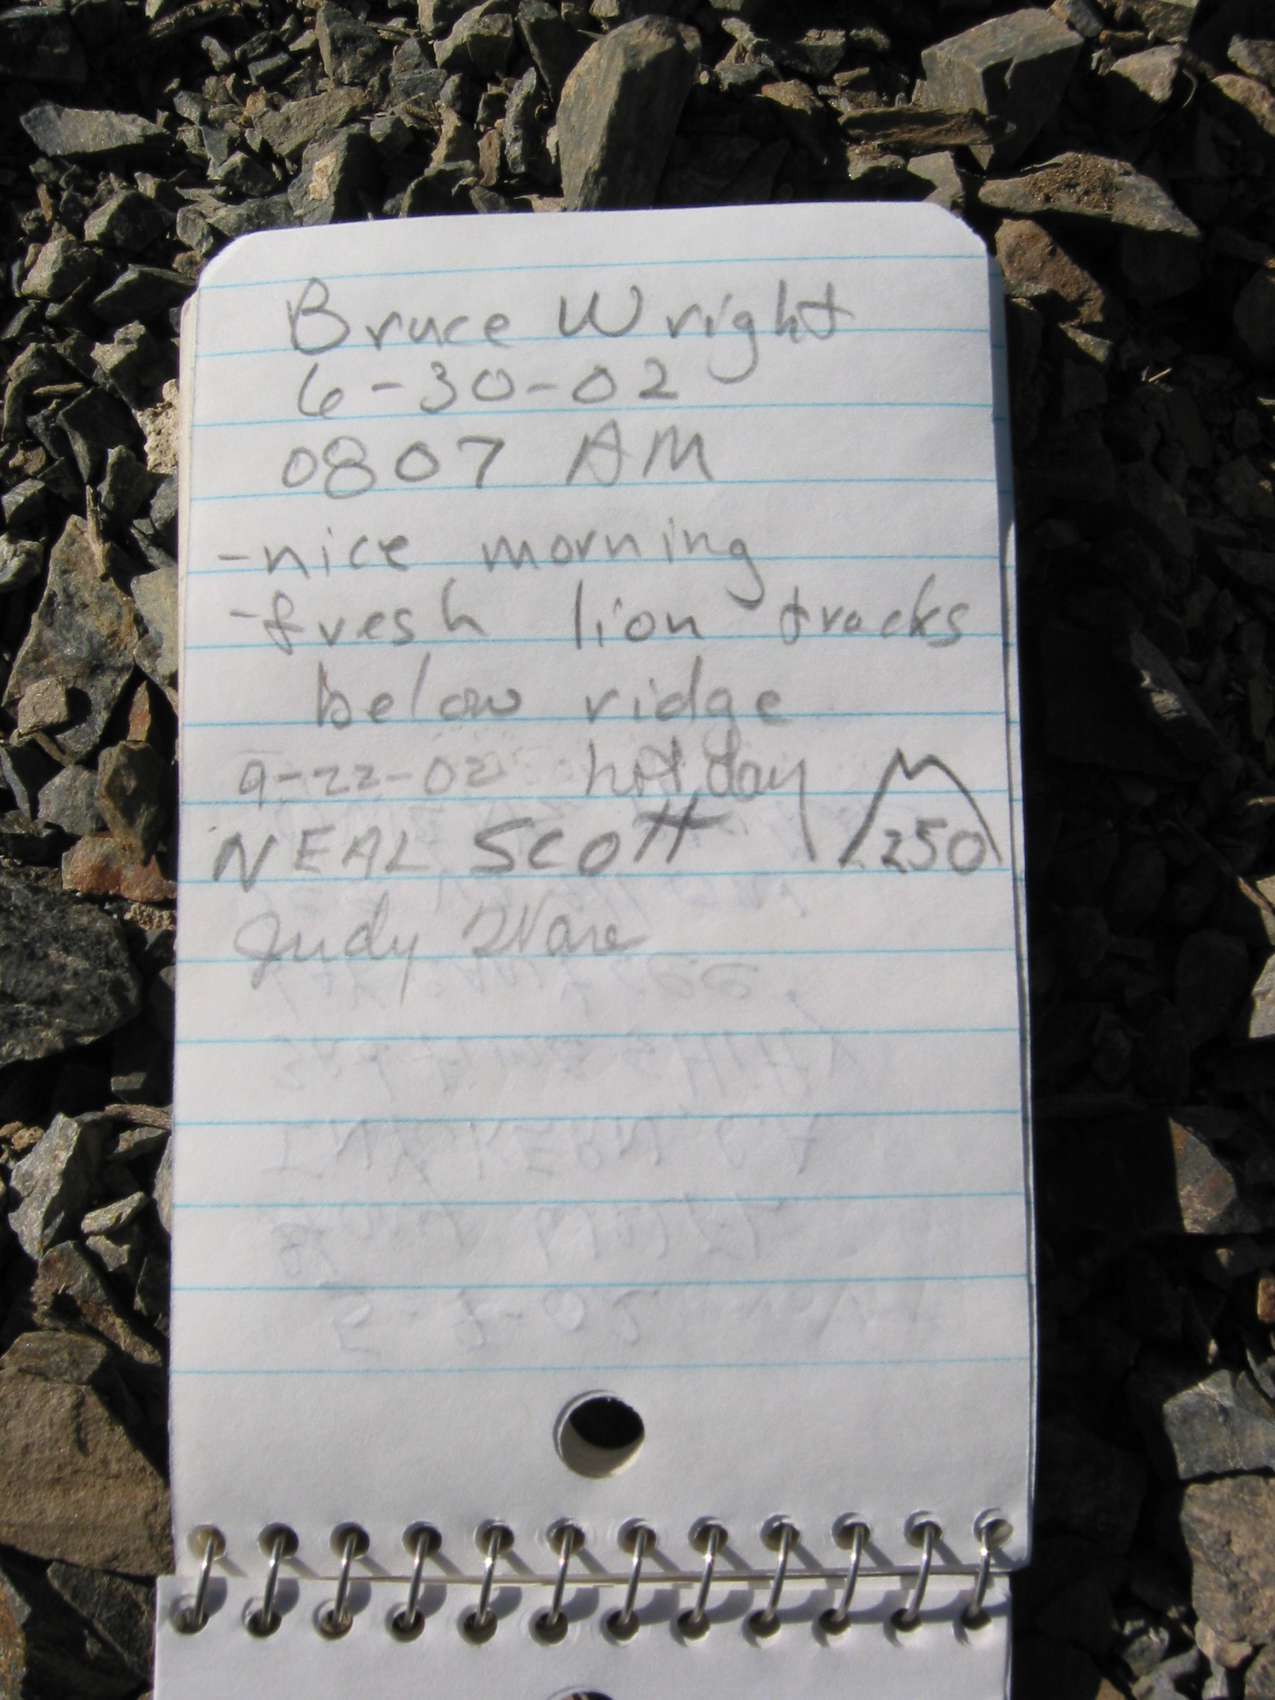 Bruce Wright
6-30-02
0807 AM
-nice morning
-fresh lion tracks
below ridge
9-22-02 hot day
NEAL SCOTT 250
Judy Ware